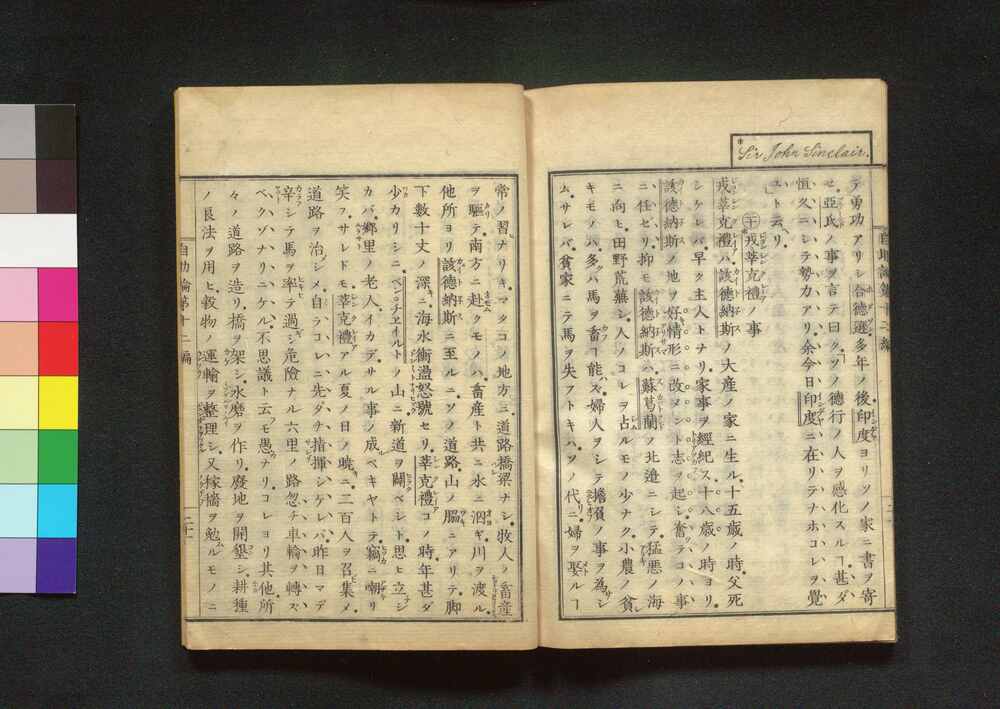 *Sir John Sinclair.
テ勇功アリシ合德遜多年ノ後印度ヨリソノ家ニ書ヲ寄
セ亞氏ノ事ヲ言テ曰クソノ德行ノ人ヲ感化スルヿ甚ダ
恒久ニシテ勢力アリ余今日印度ニ在リテナホコレヲ覺
ユト云リ
戎莘克禮ノ事
戎莘克禮ハ該德納斯ノ大産ノ家ニ生ル十五歳ノ時父死
シケレバ早ク主人トナリ家事ヲ經紀ス十八歳ノ時ヨリ
該德納斯ノ地ヲ好情形ニ改メント志ヲ起シ奮テコノ事
ニ任ゼリ抑モ該德納斯ハ蘇葛蘭ノ北邉ニシテ猛悪ノ海
ニ向ヒ田野荒蕪シ人ノコレヲ占ルモノ少ナク小農ノ貧
キモノハ多ク馬ヲ畜フヿ能ハズ婦人ヲシテ擔負ノ事ヲ為サシ
ム サレバ貧家ニテ馬ヲ失フトキハソノ代リニ婦ヲ娶ルヿ
常ノ習ナリキマタコノ地方ニ道路橋梁ナシ牧人ノ畜産
ヲ驅テ南方ニ赴クモノハ畜産ト共ニ水ニ泅ギ川ヲ渡ル
他所ヨリ該德納斯ニ至ルニソノ道路山ノ腸ニアリテ脚
下數十丈ノ深ニ海水衝盪怒號セリ莘克禮コノ時年甚ダ
少カリシニベン○チヱイルトノ山ニ新道ヲ闢ベシト思ヒ立シ
カバ鄕里ノ老人イカデサル事ノ成ベキヤトテ竊ニ嘲リ
笑フサレドモ莘克禮アル夏ノ日ノ曉ニ二百人ヲ召集メ
道路ヲ治シメ自ラコレニ先ダチ指揮シケレバ昨日マデ
辛シテ馬ヲ率テ過ギシ危險ナル六里ノ路忽チ車輪ヲ轉ス
ベクゾナリニケル不思議ト云フモ愚ナリコレヨリ其他所
々ノ道路ヲ造リ橋ヲ架シ水磨ヲ作リ廢地ヲ開墾シ耕種
ノ良法ヲ用ヒ穀物ノ運輸ヲ整理シ又稼穡ヲ勉ルモノニ
自助論第十二編